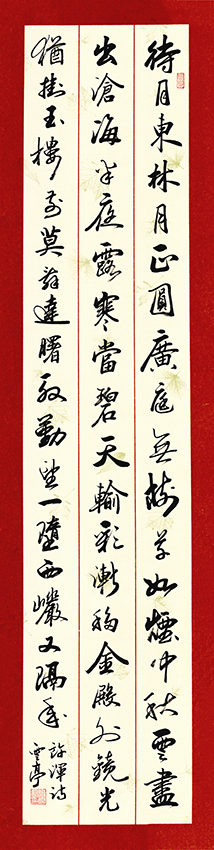 待月東林月正圓廣庭無樹草如煙中秋雲盡
出滄海半庭露寒當碧天輪彩漸移金殿外鏡光
猶掛玉樓前莫辭達曙殷勤望一墮西巖又隔年
許渾詩
雲亭